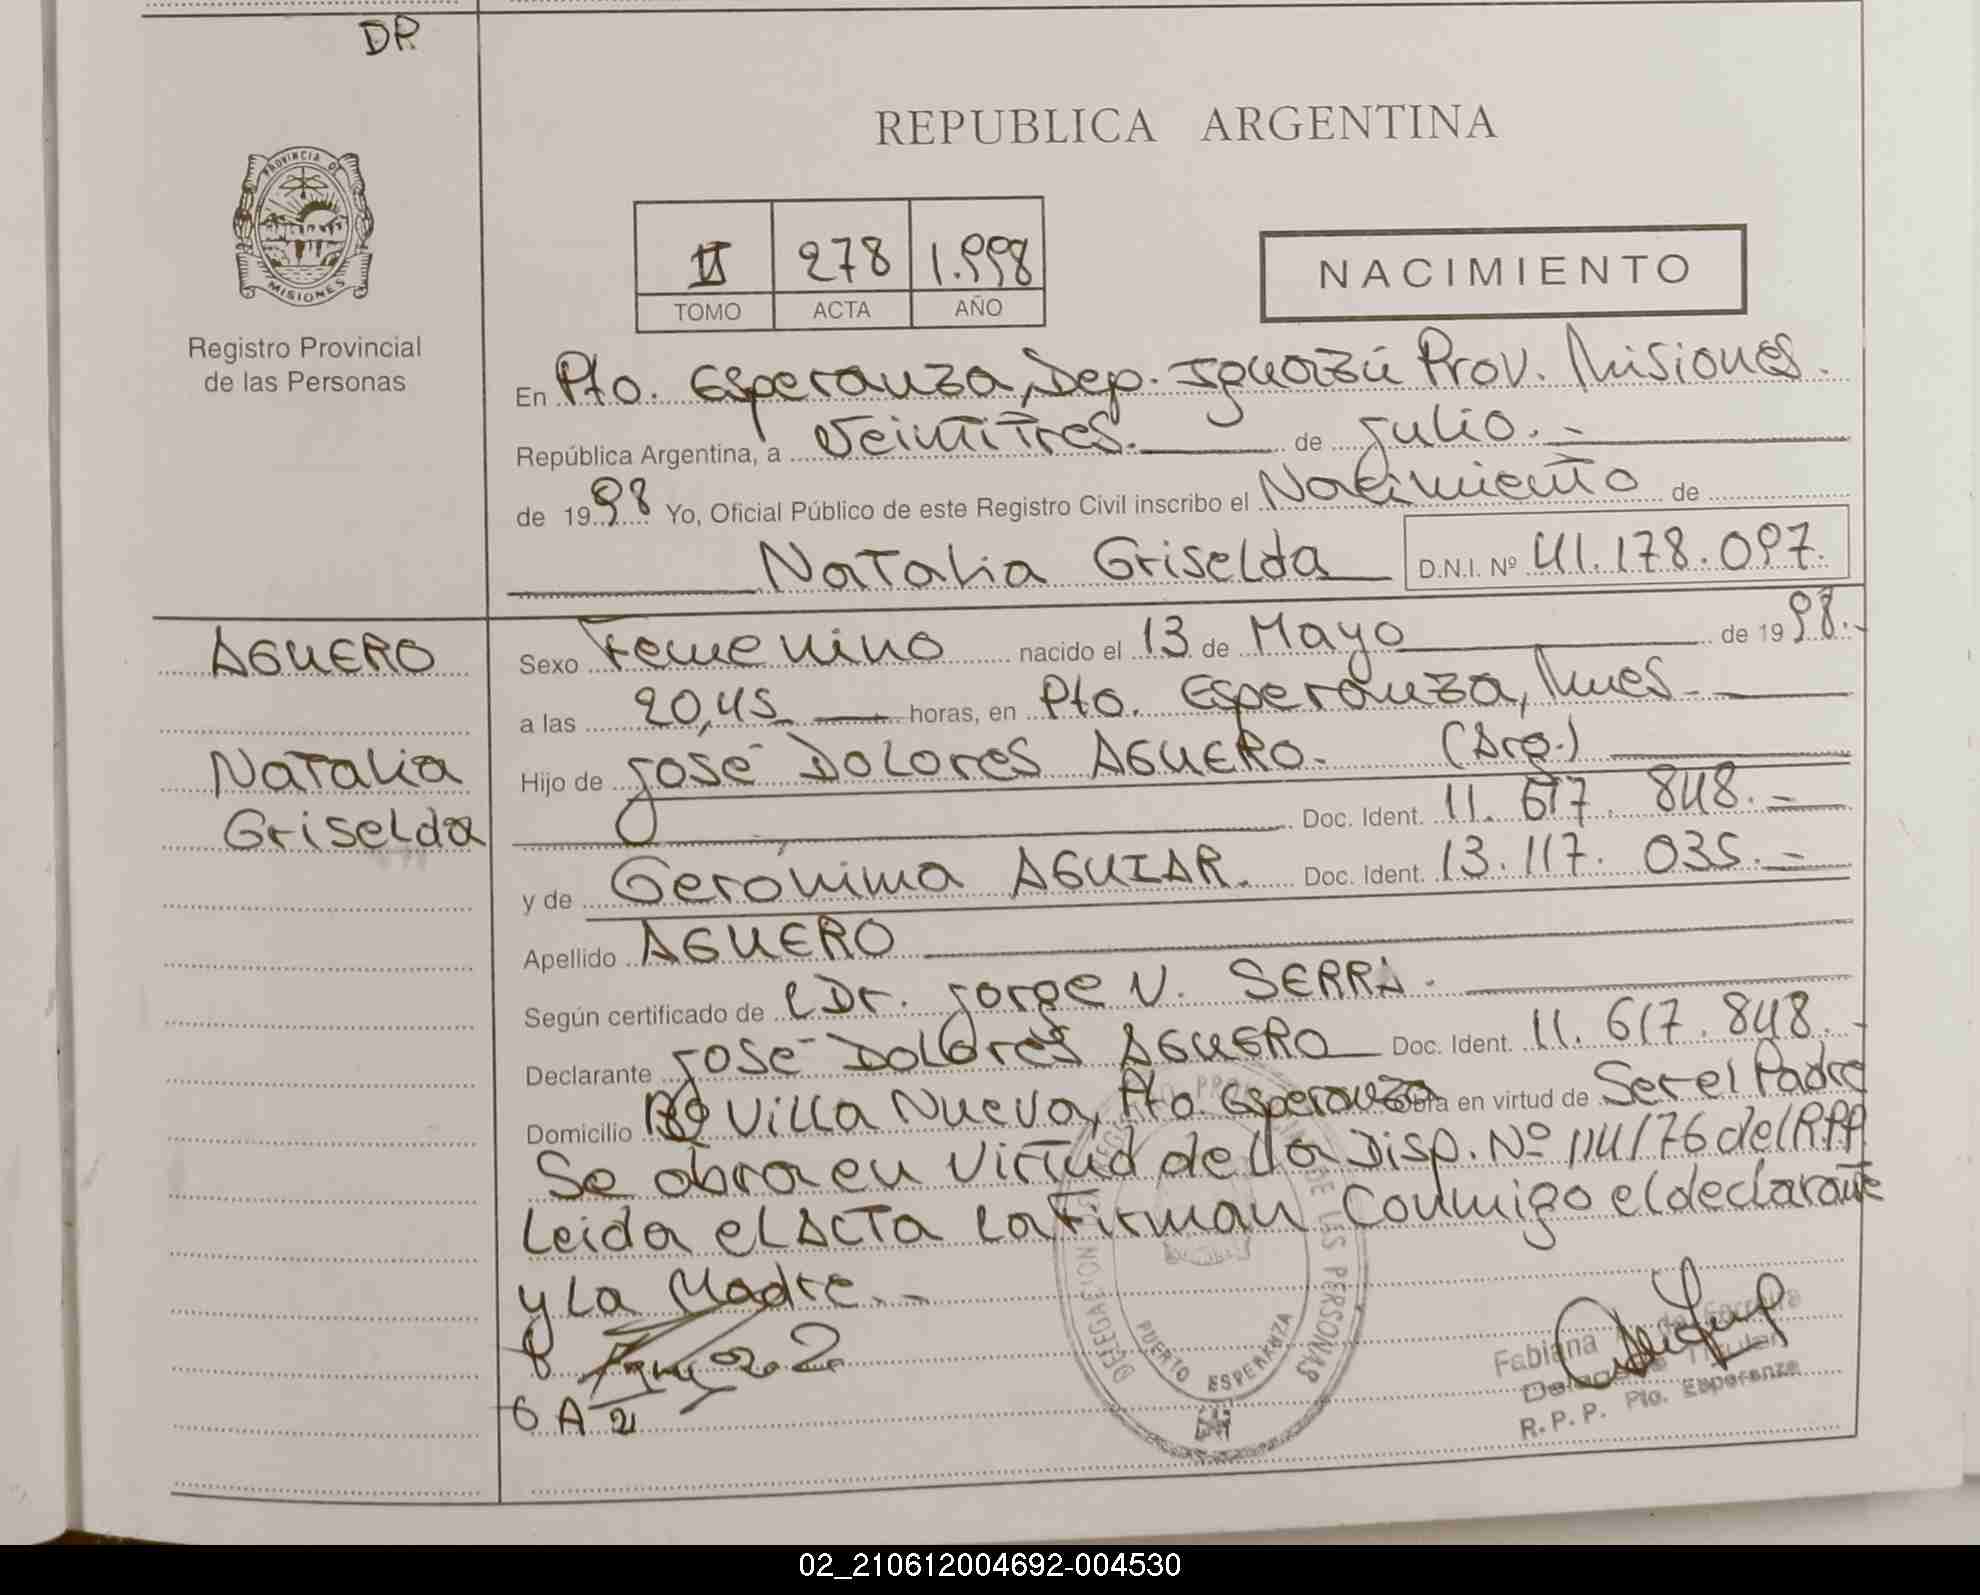 DR
REPUBLICA ARGENTINA
PROVINCIA DE
MISIONES
Registro Provincial
de las Personas
II 278 1.998
TOMO ACTA AÑO
NACIMIENTO
En Pto. Esperanza, Dep. Iguazú Prov. Misiones.
República Argentina, a Veintitres. de Julio. -
de 1998 Yo, Oficial Público de este Registro Civil inscribo el Nacimiento de
Natalia Griselda D.N.I. Nº 41.178.097.
AGUERO
Natalia
Griselda
Sexo Femenino nacido el 13 de Mayo de 1998.-
a las 20,45 horas, en Pto. Esperanza, Mnes.
Hijo de José DOLores AGUERO. (Arg.)
Doc. Ident. 11. 617. 848. -
y de Gerónima AGUIAR. Doc. Ident. 13.117. 035. -
Apellido AGUERO
Según certificado de Dr. Jorge N. SERRA.
Declarante José DOLores AGUERO Doc. Ident. 11. 617. 848. -
Domicilio Bº Villa Nueva, Pto. Esperanza Obra en virtud de Ser el Padre
Se obra en virtud de la Disp. Nº 114/76 del R.P.P.
Leida el ACTA La Firman Conmigo el declarante
y La Madre. -
6 A
PUERTO ESPERANZA
DE LAS PERSONAS
Fabiana de Ferreira
Delegada Titular
R. P. P. Pto. Esperanza
02_210612004692-004530